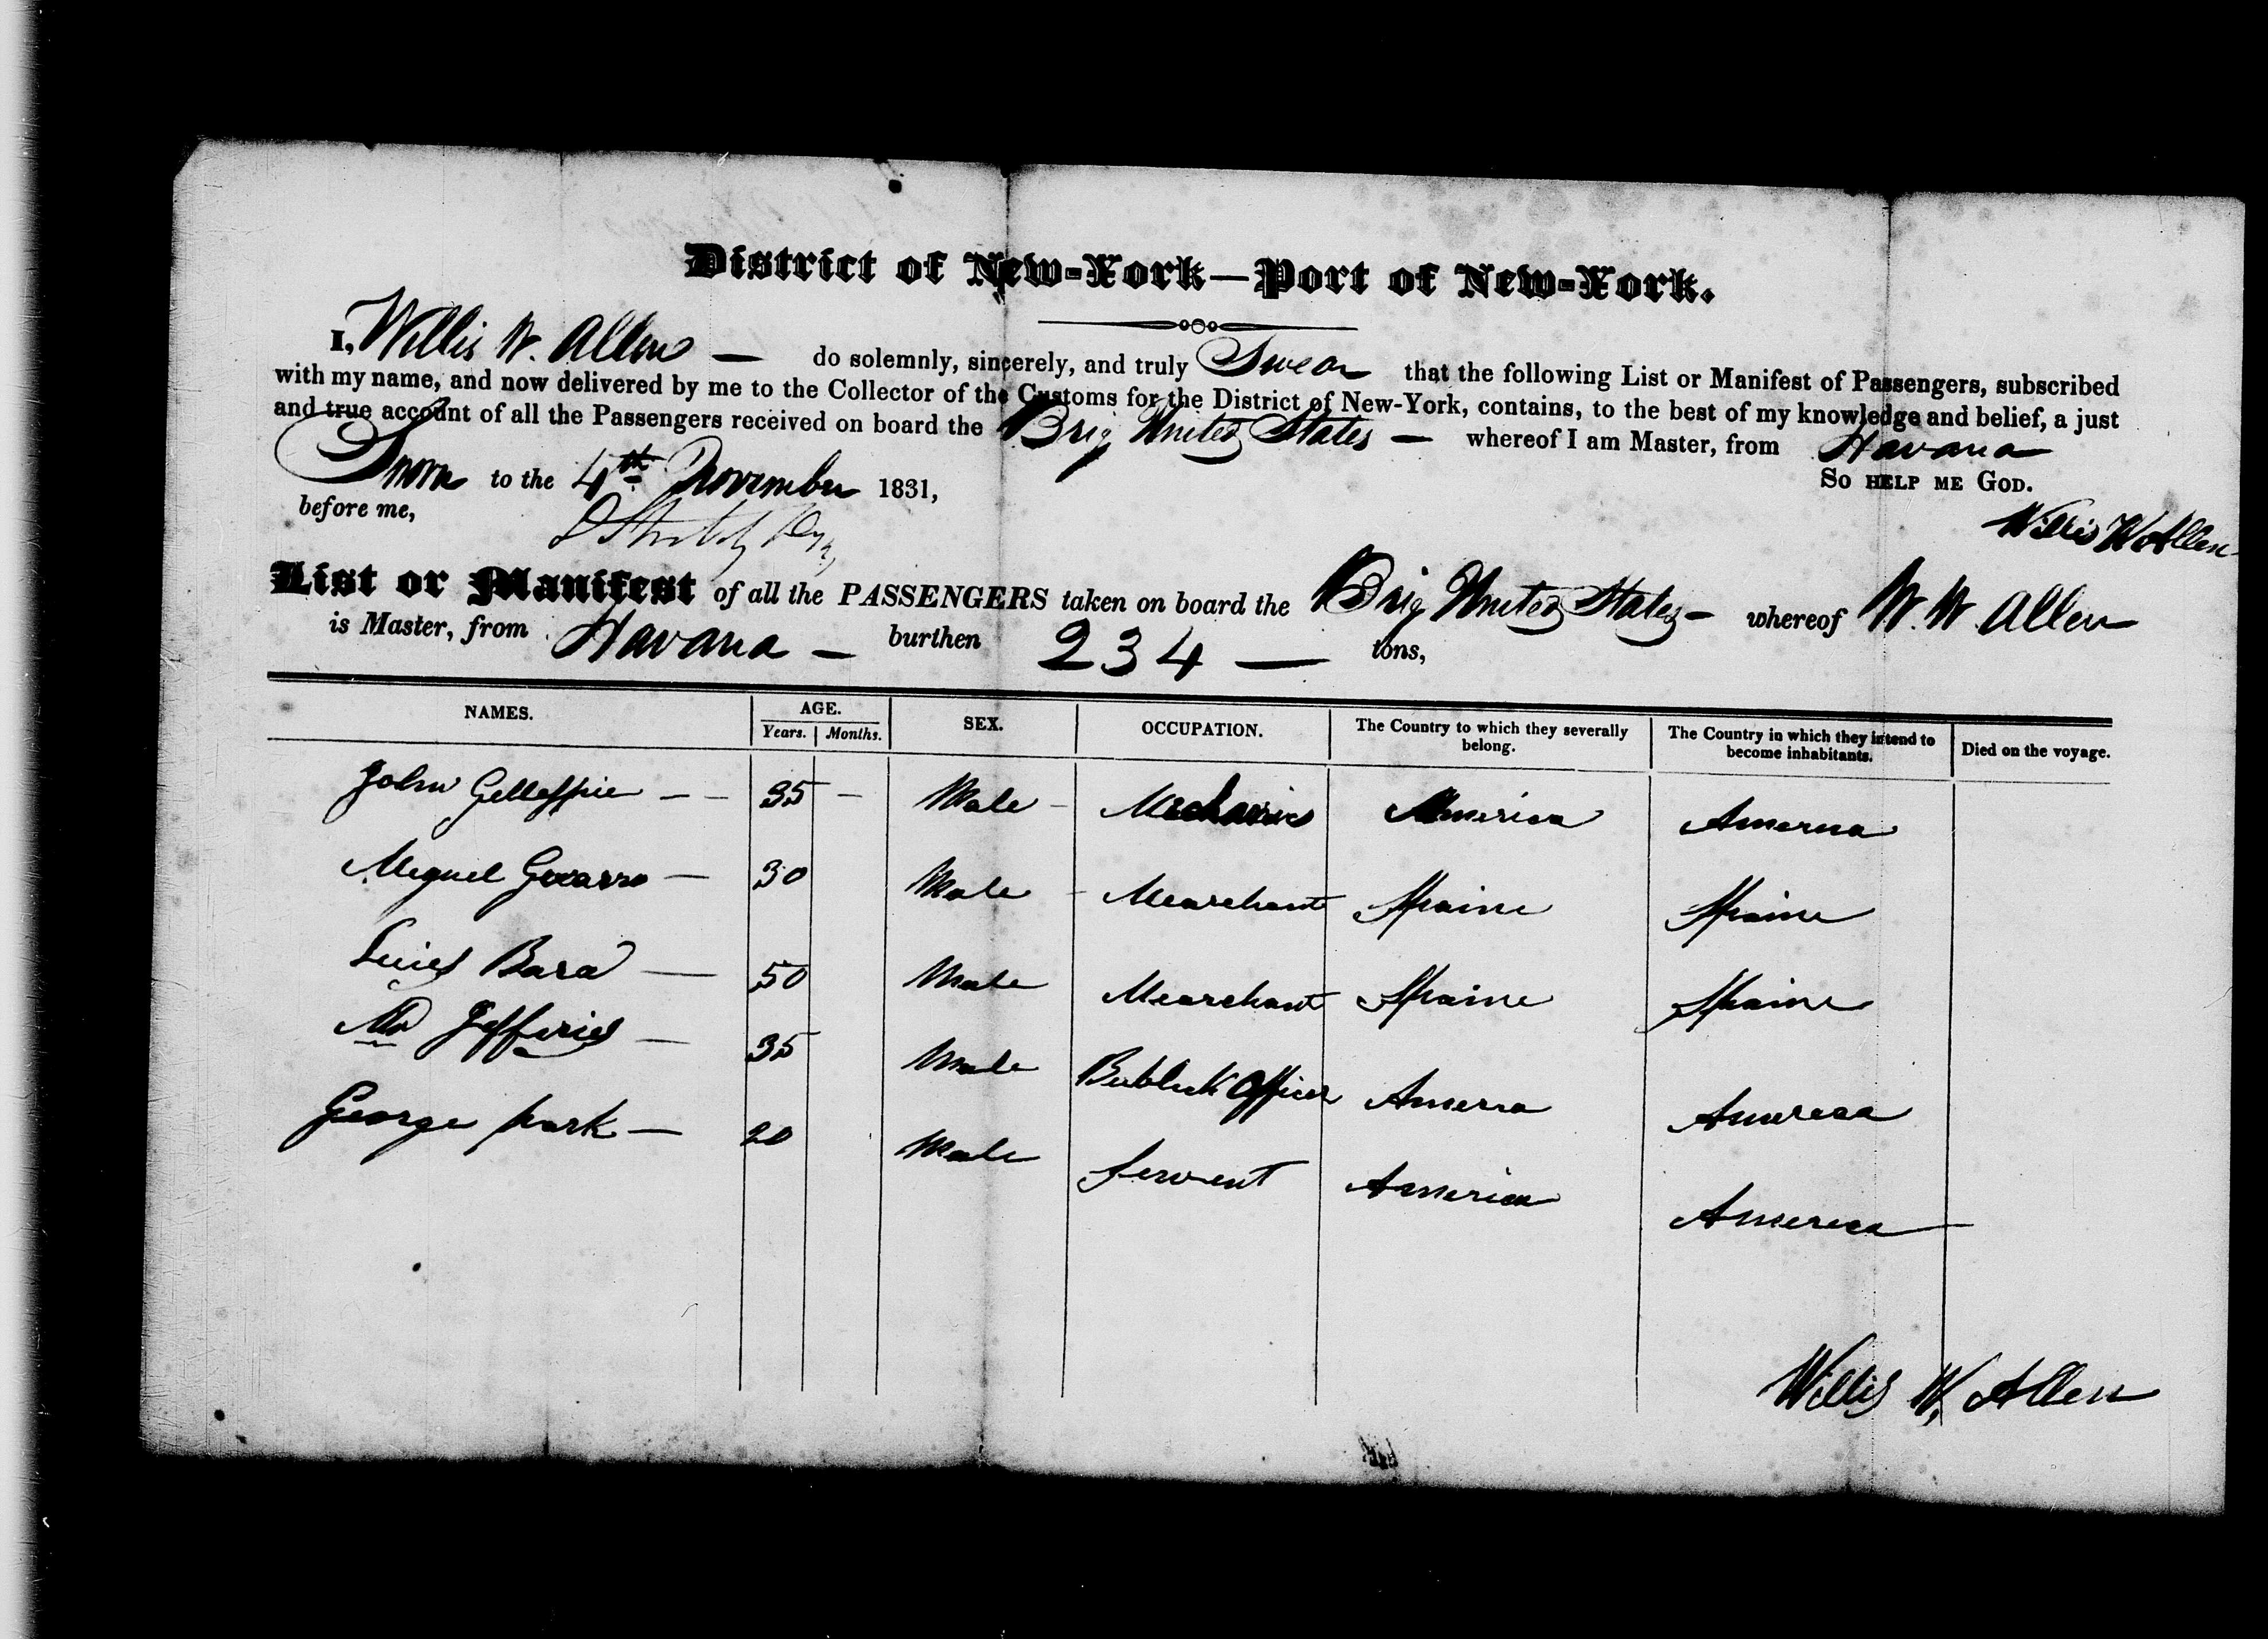 District of New-York—Port of New-York.
I, Willis W. Allen — do solemnly, sincerely, and truly Swear that the following List or Manifest of Passengers, subscribed
with my name, and now delivered by me to the Collector of the Customs for the District of New-York, contains, to the best of my knowledge and belief, a just
and true account of all the Passengers received on board the Brig United States — whereof I am Master, from Havana
Sworn to the 4th November 1831, So help me God.
before me, Willis W Allen
List or Manifest of all the PASSENGERS taken on board the Brig United States — whereof W. W. Allen
is Master, from Havana — burthen 234 — tons,
NAMES. AGE. SEX. OCCUPATION. The Country to which they severally belong. The Country in which they intend to become inhabitants. Died on the voyage.
Years. Months.
John Gellespie — — 35 — Male — Mechanic America America
Miguel — 30 Male - Mearchant Spaine Spaine
Luies Bara — 50 Male Mearchant Spaine Spaine
Mr Jefferies — 35 Male Publick Officer America America
George park — 20 Male Servent America America —
Willis W. Allen